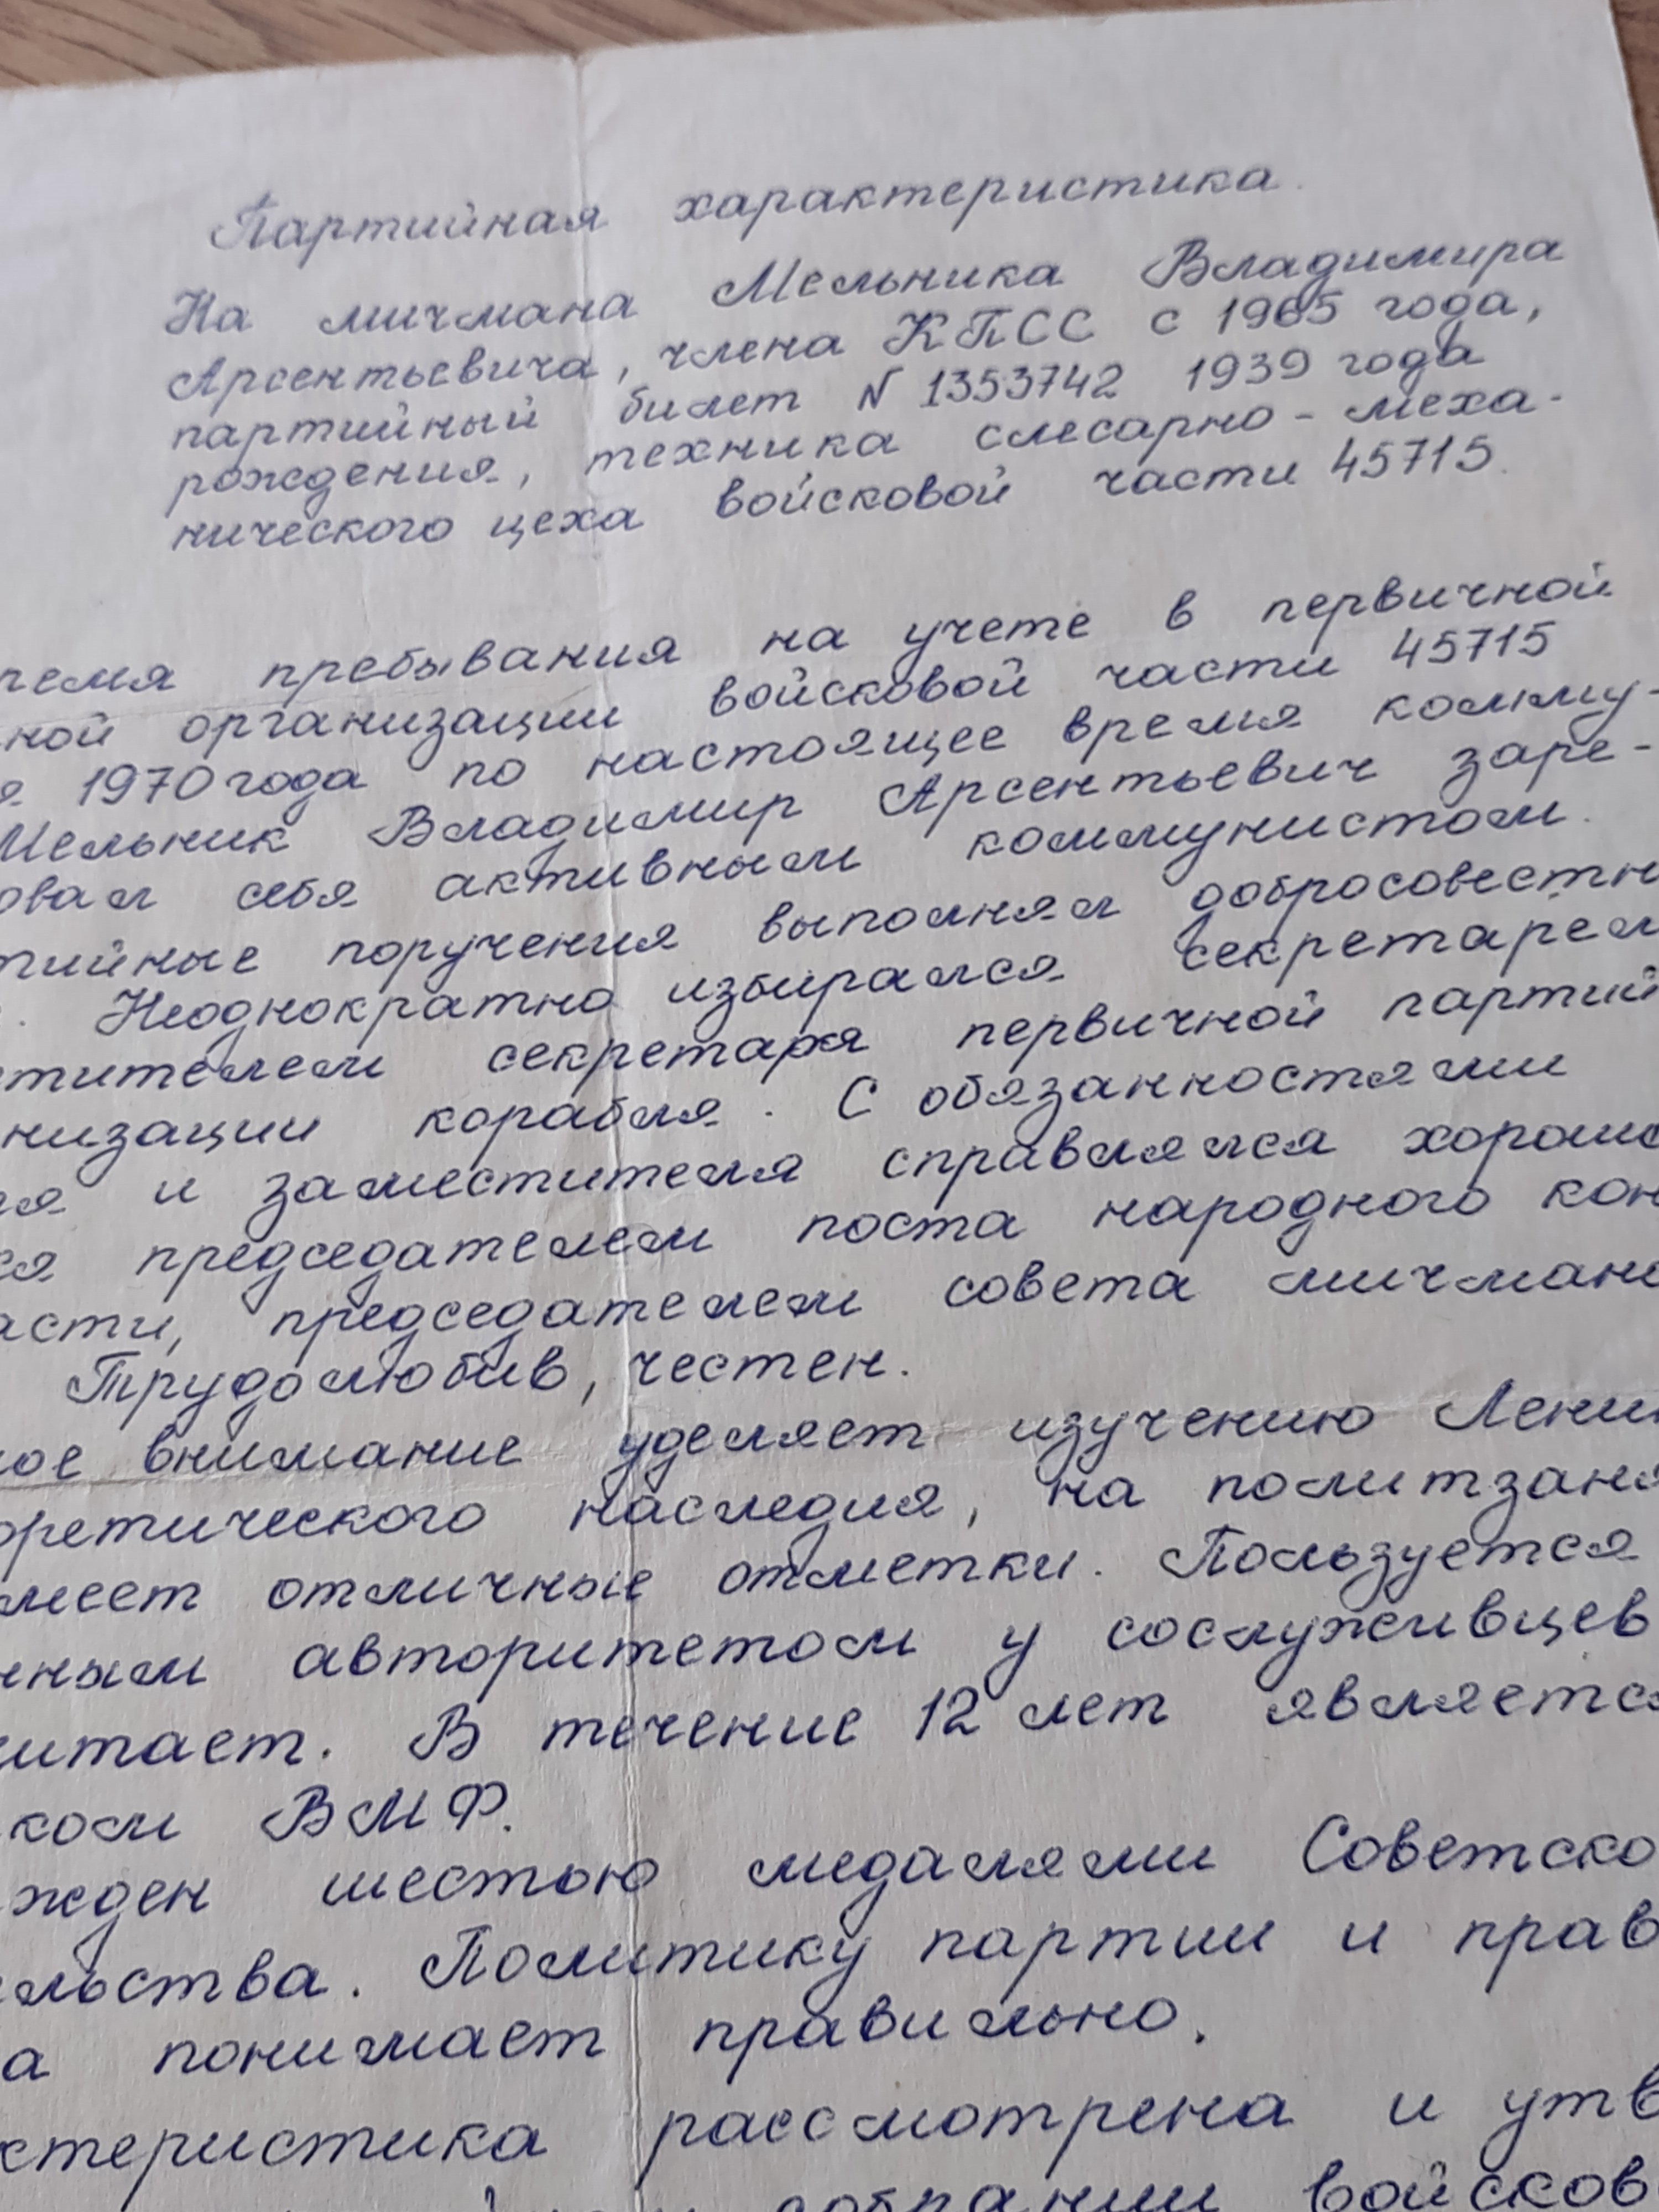 Партийная характеристика.
На мичмана Мельника Владимира
Арсентьевича, члена КПСС с 1965 года,
партийный билет N 1353742 1939 года
рождения, техника слесарно-меха-
нического цеха войсковой части 45715.
ремя пребывания на учете в первичной
ной организации войсковой части 45715
я 1970 года по настоящее время комму-
Мельник Владимир Арсентьевич заре-
овал себя активным коммунистом.
тийные поручения выполнял добросовестн
. Неоднократно избирался секретарем
тителем секретаря первичной партий
низации корабля. С обязанностями
ля и заместителя справлялся хорошо
ся председателем поста народного кон
асти, председателем совета мичмано
Трудолюбив, честен.
кое внимание уделяет изучению Ленин
оретического наследия, на политзаня
меет отличные отметки. Пользуется
нным авторитетом у сослуживцев
читает. В течение 12 лет являетс
ком ВМФ.
жден шестью медалями Советско
льства. Политику партии и прав
а понимает правильно.
ктеристика рассмотрена и утв
собрании войсков